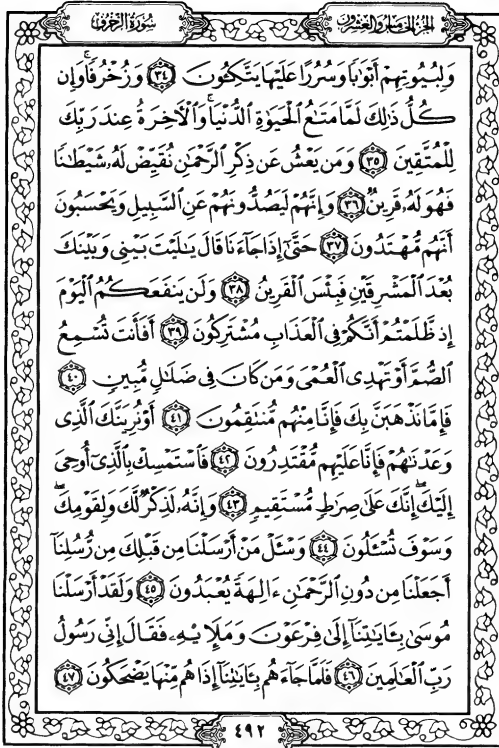 الجزء الخامس والعشرون
سورة الزخرف
وَلِبُيُوتِهِمْ أَبْوَٰبًا وَسُرُرًا عَلَيْهَا يَتَّكِـُٔونَ ﴿٣٤﴾ وَزُخْرُفًا ۚ وَإِن
كُلُّ ذَٰلِكَ لَمَّا مَتَـٰعُ ٱلْحَيَوٰةِ ٱلدُّنْيَا ۚ وَٱلْـَٔاخِرَةُ عِندَ رَبِّكَ
لِلْمُتَّقِينَ ﴿٣٥﴾ وَمَن يَعْشُ عَن ذِكْرِ ٱلرَّحْمَـٰنِ نُقَيِّضْ لَهُۥ شَيْطَـٰنًا
فَهُوَ لَهُۥ قَرِينٌ ﴿٣٦﴾ وَإِنَّهُمْ لَيَصُدُّونَهُمْ عَنِ ٱلسَّبِيلِ وَيَحْسَبُونَ
أَنَّهُم مُّهْتَدُونَ ﴿٣٧﴾ حَتَّىٰٓ إِذَا جَآءَنَا قَالَ يَـٰلَيْتَ بَيْنِى وَبَيْنَكَ
بُعْدَ ٱلْمَشْرِقَيْنِ فَبِئْسَ ٱلْقَرِينُ ﴿٣٨﴾ وَلَن يَنفَعَكُمُ ٱلْيَوْمَ
إِذ ظَّلَمْتُمْ أَنَّكُمْ فِى ٱلْعَذَابِ مُشْتَرِكُونَ ﴿٣٩﴾ أَفَأَنتَ تُسْمِعُ
ٱلصُّمَّ أَوْ تَهْدِى ٱلْعُمْىَ وَمَن كَانَ فِى ضَلَـٰلٍ مُّبِينٍ ﴿٤٠﴾
فَإِمَّا نَذْهَبَنَّ بِكَ فَإِنَّا مِنْهُم مُّنتَقِمُونَ ﴿٤١﴾ أَوْ نُرِيَنَّكَ ٱلَّذِى
وَعَدْنَـٰهُمْ فَإِنَّا عَلَيْهِم مُّقْتَدِرُونَ ﴿٤٢﴾ فَٱسْتَمْسِكْ بِٱلَّذِىٓ أُوحِىَ
إِلَيْكَ ۖ إِنَّكَ عَلَىٰ صِرَٰطٍ مُّسْتَقِيمٍ ﴿٤٣﴾ وَإِنَّهُۥ لَذِكْرٌ لَّكَ وَلِقَوْمِكَ ۖ
وَسَوْفَ تُسْـَٔلُونَ ﴿٤٤﴾ وَسْـَٔلْ مَنْ أَرْسَلْنَا مِن قَبْلِكَ مِن رُّسُلِنَآ
أَجَعَلْنَا مِن دُونِ ٱلرَّحْمَـٰنِ ءَالِهَةً يُعْبَدُونَ ﴿٤٥﴾ وَلَقَدْ أَرْسَلْنَا
مُوسَىٰ بِـَٔايَـٰتِنَآ إِلَىٰ فِرْعَوْنَ وَمَلَإِي۟هِۦ فَقَالَ إِنِّى رَسُولُ
رَبِّ ٱلْعَـٰلَمِينَ ﴿٤٦﴾ فَلَمَّا جَآءَهُم بِـَٔايَـٰتِنَآ إِذَا هُم مِّنْهَا يَضْحَكُونَ ﴿٤٧﴾
٤٩٢